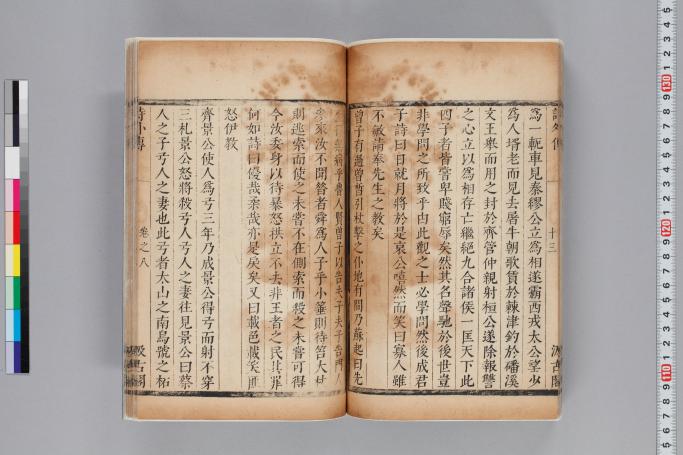 詩外傳
十三
汲古閣
爲一軛車見秦繆公立爲相遂霸西戎太公望少
爲人壻老而見去屠牛朝歌賃於棘津釣於磻溪
文王舉而用之封於齊管仲親射桓公遂除報讐
之心立以爲相存亡繼絕九合諸侯一匡天下此
四子者皆嘗卑賤窮辱矣然其名聲馳於後世豈
非學問之所致乎由此觀之士必學問然後成君
子詩曰日就月將於是哀公嘻然而笑曰寡人雖
不敏請奉先生之教矣
曾子有過曾晳引杖擊之仆地有間乃蘇起曰先
病乎魯人賢曾子以告夫子夫子告門人
參來汝不聞昔者舜爲人子乎小箠則待笞大杖
則逃索而使之未嘗不在側索而殺之未嘗可得
今汝委身以待暴怒拱立不去非王者之民其罪
何如詩曰優哉柔哉亦是戾矣又曰載色載笑匪
怒伊教
齊景公使人爲弓三年乃成景公得弓而射不穿
三札景公怒將殺弓人弓人之妻往見景公曰蔡
人之子弓人之妻也此弓者太山之南烏號之柘
詩外傳
卷之八
汲古閣
130
120
110